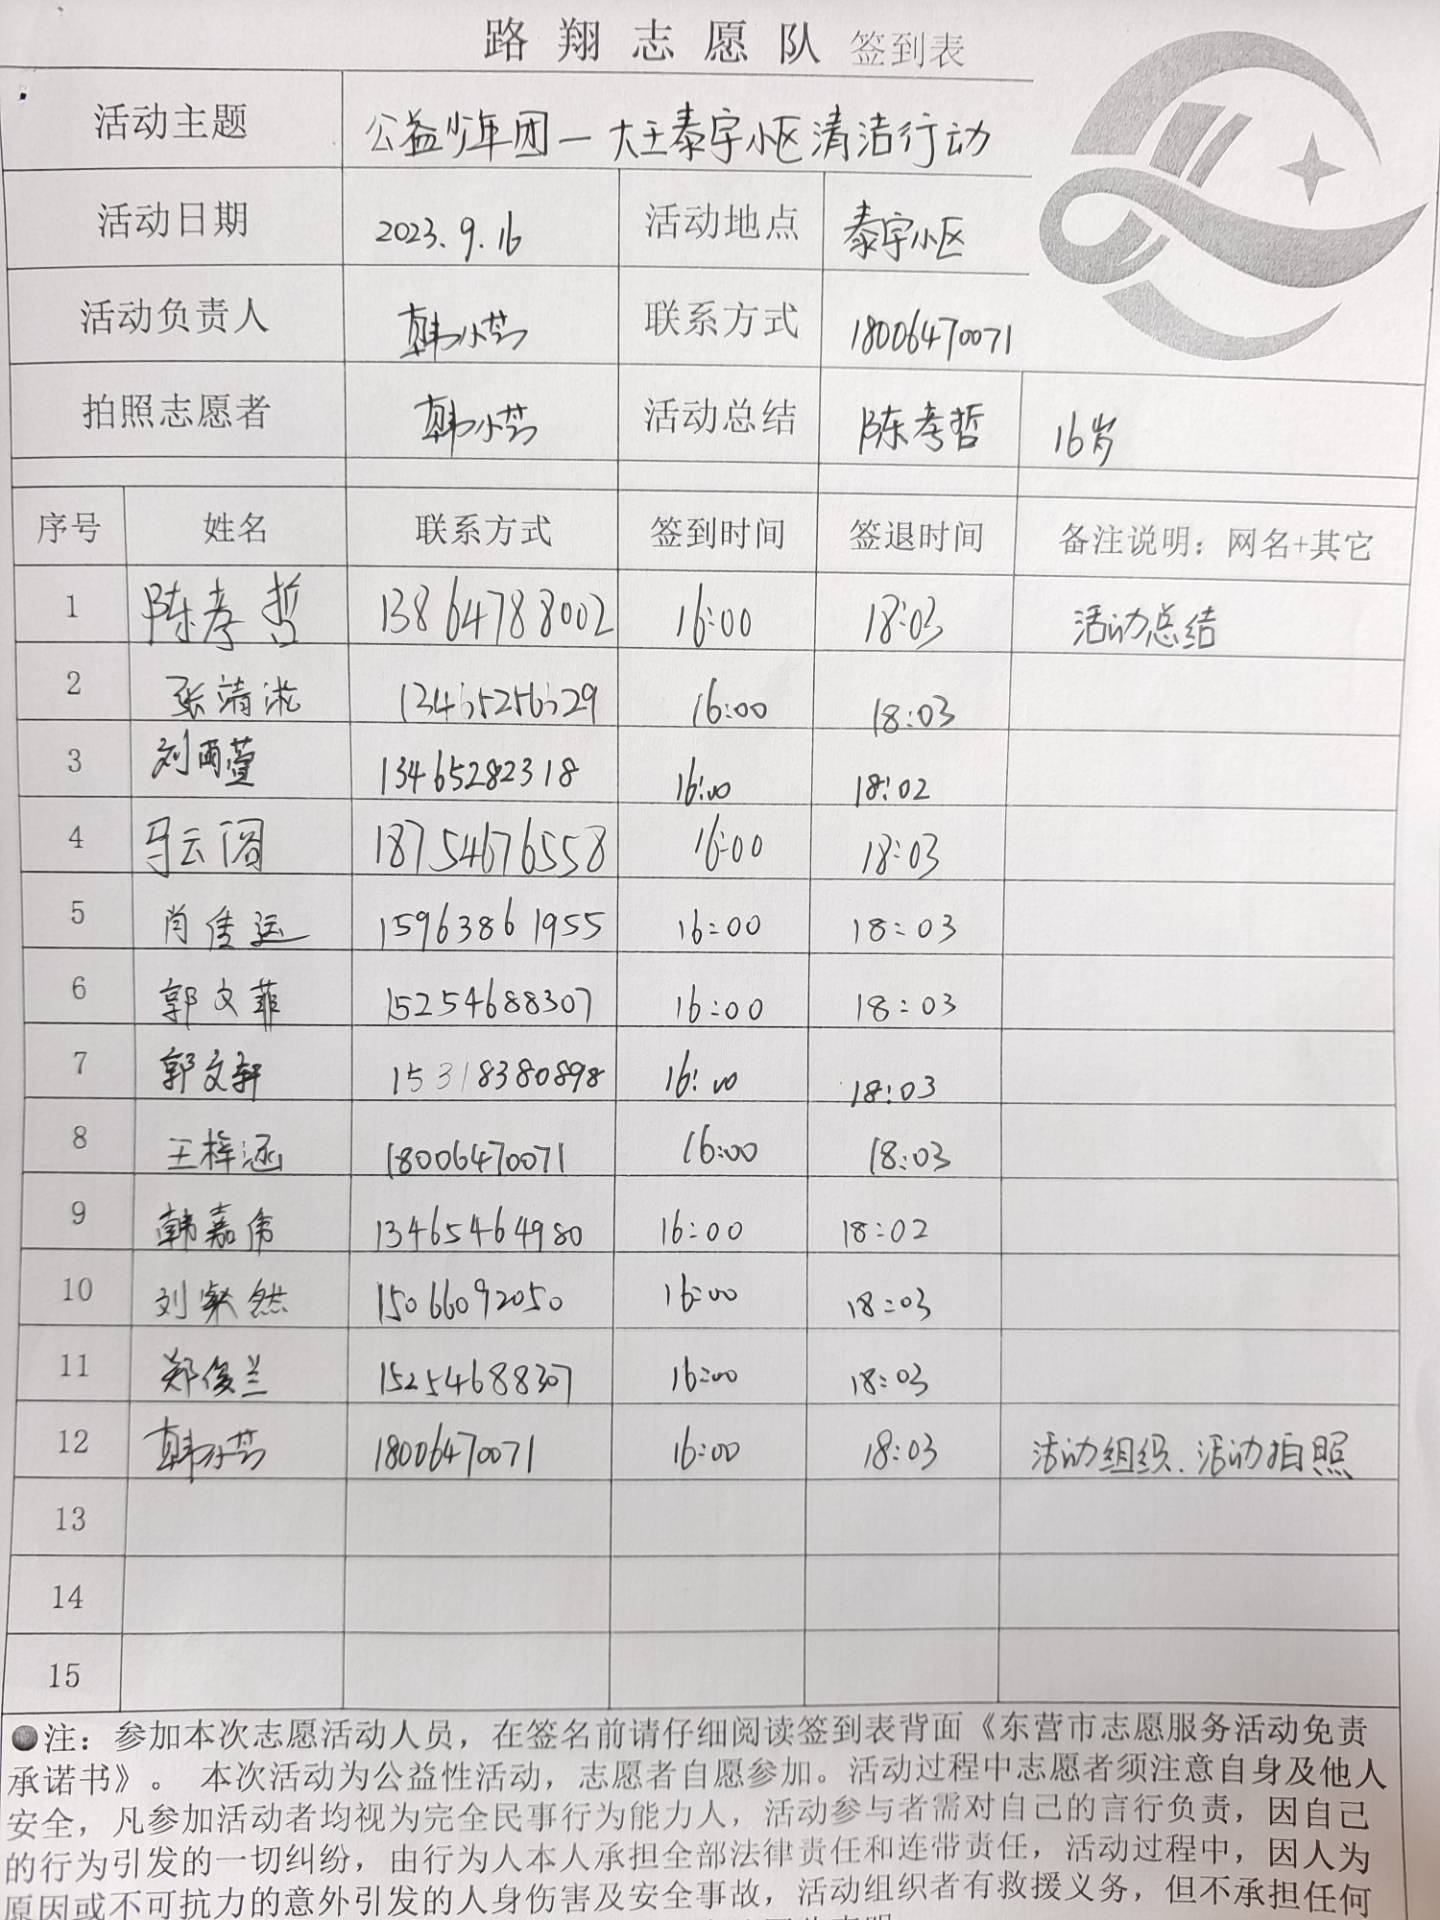 路翔志愿队 签到表
活动主题 公益少年团一大王泰宇小区清洁行动
活动日期 2023.9.16 活动地点 泰宇小区
活动负责人 韩小芳 联系方式 18006470071
拍照志愿者 韩小芳 活动总结 陈孝哲 16岁
序号 姓名 联系方式 签到时间 签退时间 备注说明：网名+其它
1 陈孝哲 13864788002 16:00 18:03 活动总结
2 张清淞 13465256529 16:00 18:03
3 刘雨萱 13465282318 16:00 18:02
4 马云阔 18754676558 16:00 18:03
5 肖佳运 15963861955 16:00 18:03
6 郭文菲 15254688307 16:00 18:03
7 郭文轩 15318380898 16:00 18:03
8 王梓涵 18006470071 16:00 18:03
9 韩嘉伟 13465464980 16:00 18:02
10 刘然 15066092050 16:00 18:03
11 郑俊兰 15254688307 16:00 18:03
12 韩小芳 18006470071 16:00 18:03 活动组织、活动拍照
13
14
15
●注：参加本次志愿活动人员，在签名前请仔细阅读签到表背面《东营市志愿服务活动免责
承诺书》。 本次活动为公益性活动，志愿者自愿参加。活动过程中志愿者须注意自身及他人
安全，凡参加活动者均视为完全民事行为能力人，活动参与者需对自己的言行负责，因自己
的行为引发的一切纠纷，由行为人本人承担全部法律责任和连带责任，活动过程中，因人为
原因或不可抗力的意外引发的人身伤害及安全事故，活动组织者有救援义务，但不承担任何